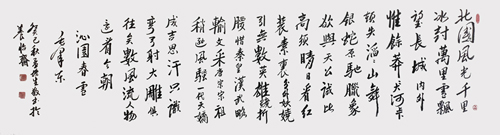 北國風光千里
冰封萬里雪飄
望長城內外
惟餘莽大河
頓失滔山舞
銀蛇原馳臘象
欲與天公試比
高須晴日看紅
裝素裹分外妖嬈
引無數英雄競折
腰惜秦皇漢武略
輸文采唐宗宋祖
稍遜風騷一代天驕
成吉思汗只識
彎弓射大雕俱
往矣數風流人物
還看今朝
沁園春雪
毛澤東
癸巳秋月